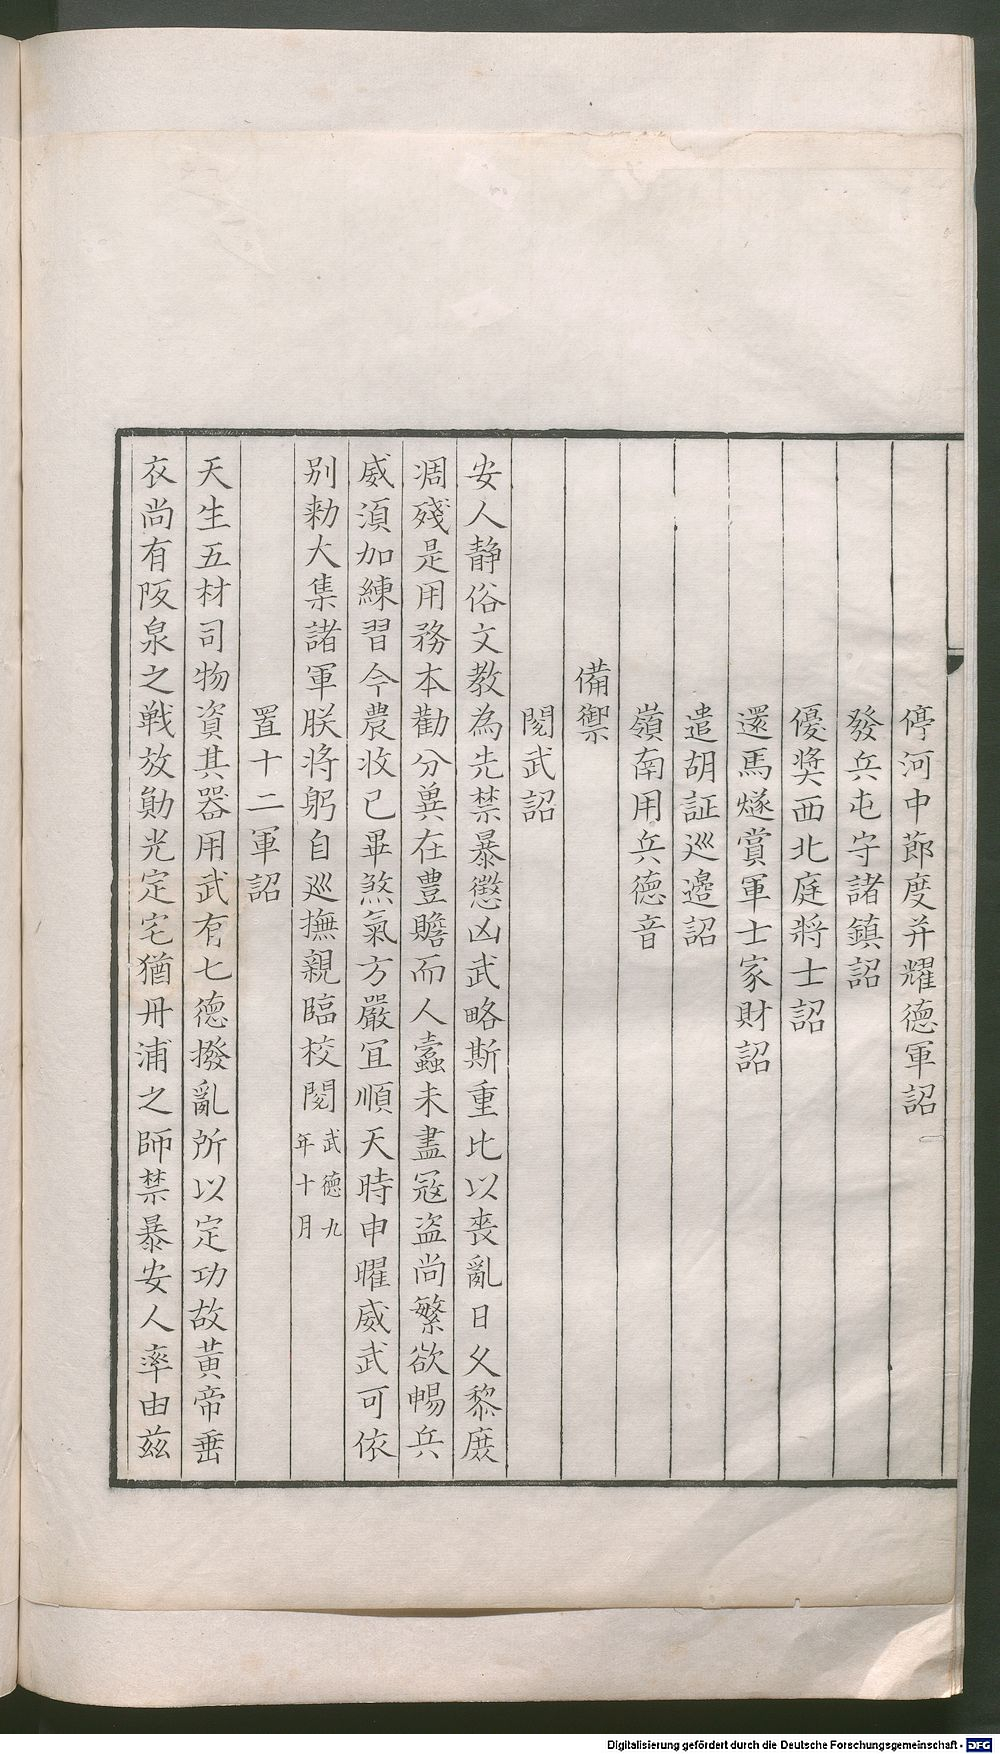 停河中節度并耀德軍詔
發兵屯守諸鎮詔
優奬西北庭將士詔
還馬燧賞軍士家財詔
遣胡証巡邊詔
嶺南用兵德音
備禦
閱武詔
安人静俗文教為先禁暴懲凶武略斯重比以喪亂日乆黎庻
凋殘是用務本勸分兾在豊贍而人蠹未盡冦盗尚繁欲暢兵
威湏加練習今農收已畢煞氣方嚴宜順天時申曜威武可依
别勑大集諸軍朕将躬自巡撫親臨校閱武德九年十月
置十二軍詔
天生五材司物資其器用武有七德撥亂所以定功故黃帝垂
衣尚有阪泉之戦放勛光定宅猶丹浦之師禁暴安人率由兹
Digitalisierung gefördert durch die Deutsche Forschungsgemeinschaft - DFG